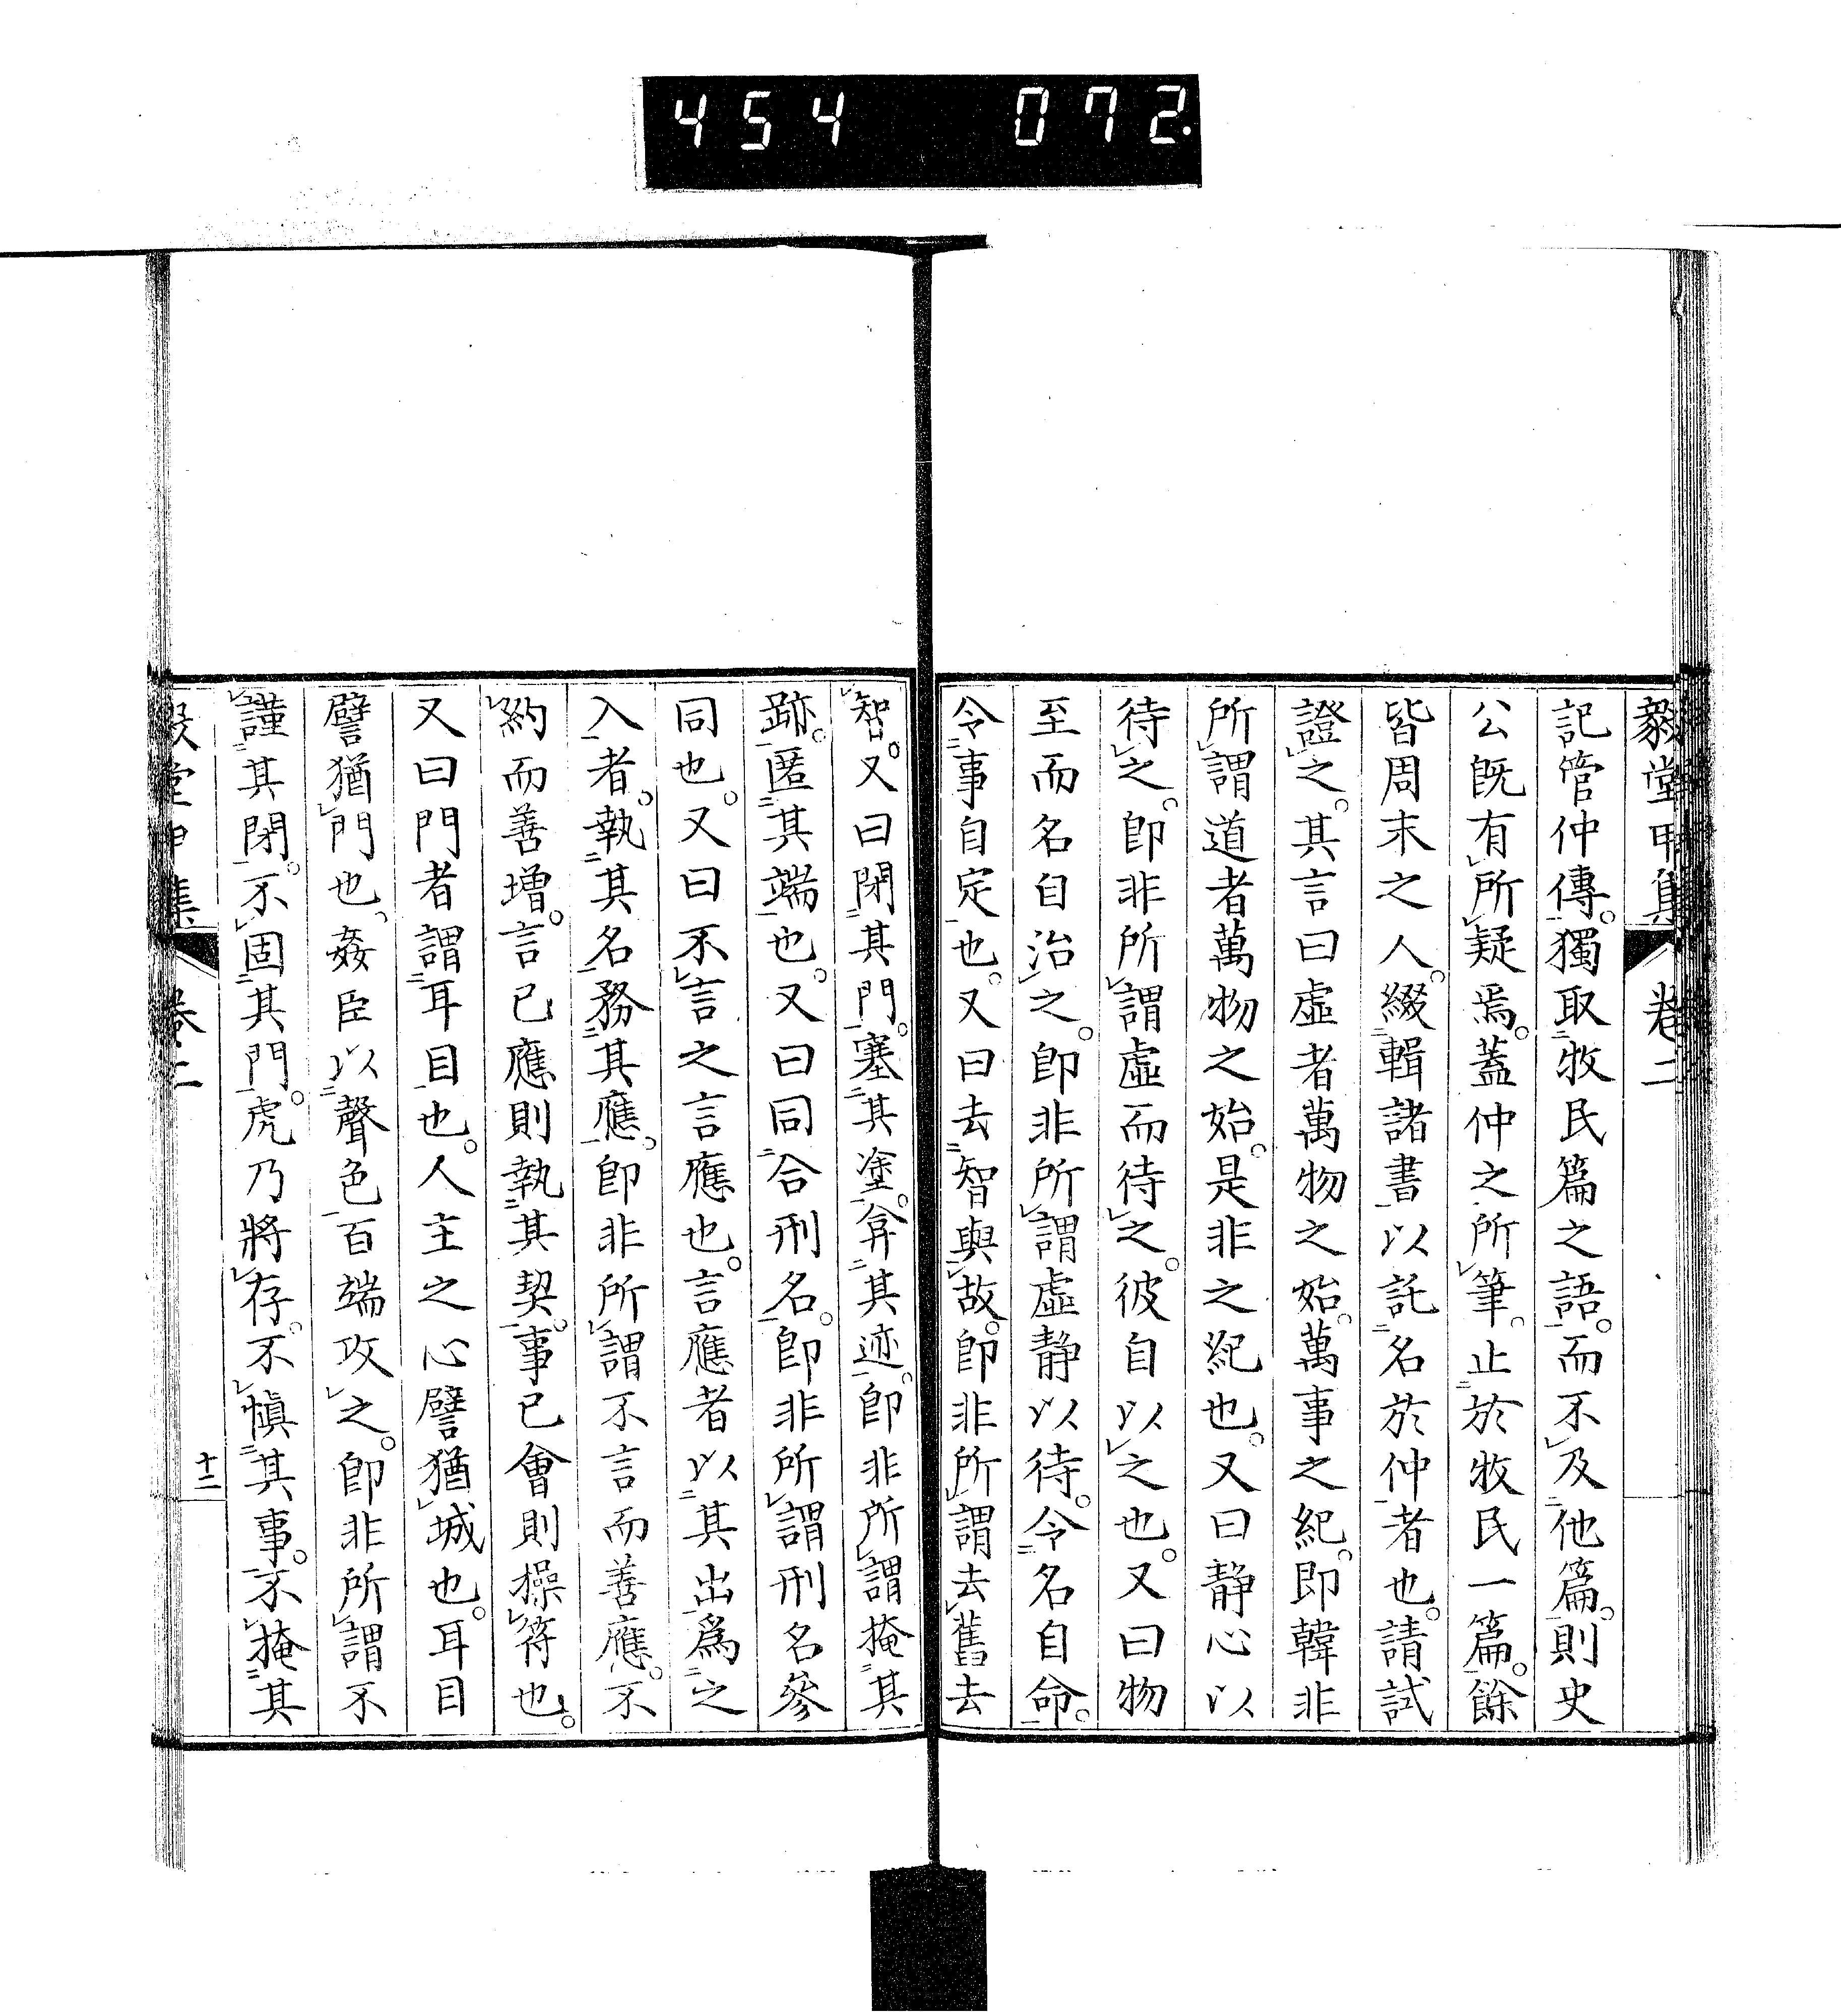 454 072.
毅堂甲集 卷二
記管仲傳。獨取牧民篇之語。而不及他篇。則史
公既有所疑焉。蓋仲之所筆。止於牧民一篇。餘
皆周末之人。綴輯諸書以託名於仲者也。請試
證之。其言曰虛者萬物之始。萬事之紀。即韓非
所謂道者萬物之始。是非之紀也。又曰靜心以
待之。即非所謂虛而待之。彼自以之也。又曰物
至而名自治之。即非所謂虛靜以待。令名自命。
令事自定也。又曰去智與故。即非所謂去舊去
智。又曰閉其門。塞其塗。弇其迹。即非所謂掩其
跡。匿其端也。又曰同合刑名。即非所謂刑名參
同也。又曰不言之言應也。言應者以其出爲之
入者。執其名務其應。即非所謂不言而善應。不
約而善增。言已應則執其契。事已會則操符也。
又曰門者謂耳目也。人主之心譬猶城也。耳目
譬猶門也。姦臣以聲色百端攻之。即非所謂不
謹其閉。不固其門。虎乃將存。不慎其事。不掩其
毅堂甲集 卷二 十二